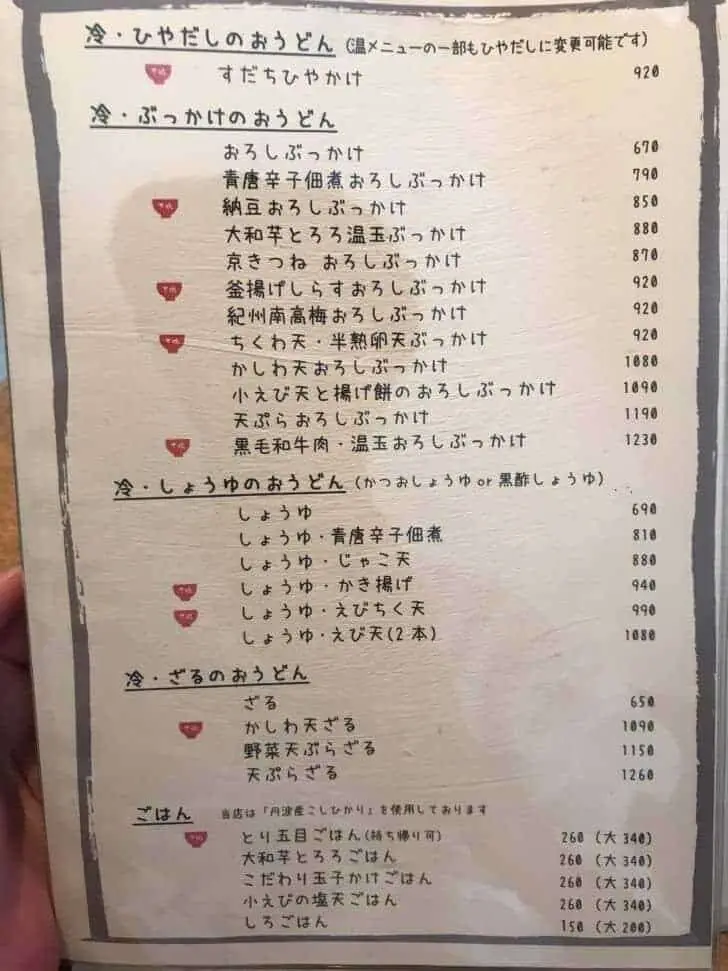 冷・ひやだしのおうどん (温メニューの一部もひやだしに変更可能です)
すだちひやかけ 920
冷・ぶっかけのおうどん
おろしぶっかけ 670
青唐辛子佃煮おろしぶっかけ 790
納豆おろしぶっかけ 850
大和芋とろろ温玉ぶっかけ 880
京きつね おろしぶっかけ 870
釜揚げしらすおろしぶっかけ 920
紀州南高梅おろしぶっかけ 920
ちくわ天・半熟卵天ぶっかけ 920
かしわ天おろしぶっかけ 1080
小えび天と揚げ餅のおろしぶっかけ 1090
天ぷらおろしぶっかけ 1190
黒毛和牛肉・温玉おろしぶっかけ 1230
冷・しょうゆのおうどん (かつおしょうゆ or 黒酢しょうゆ)
しょうゆ 690
しょうゆ・青唐辛子佃煮 810
しょうゆ・じゃこ天 880
しょうゆ・かき揚げ 940
しょうゆ・えびちく天 990
しょうゆ・えび天(2本) 1080
冷・ざるのおうどん
ざる 650
かしわ天ざる 1090
野菜天ぷらざる 1150
天ぷらざる 1260
ごはん 当店は「丹波産こしひかり」を使用しております
とり五目ごはん(持ち帰り可) 260 (大 340)
大和芋とろろごはん 260 (大 340)
こだわり玉子かけごはん 260 (大 340)
小えびの塩天ごはん 260 (大 340)
しろごはん 150 (大 200)